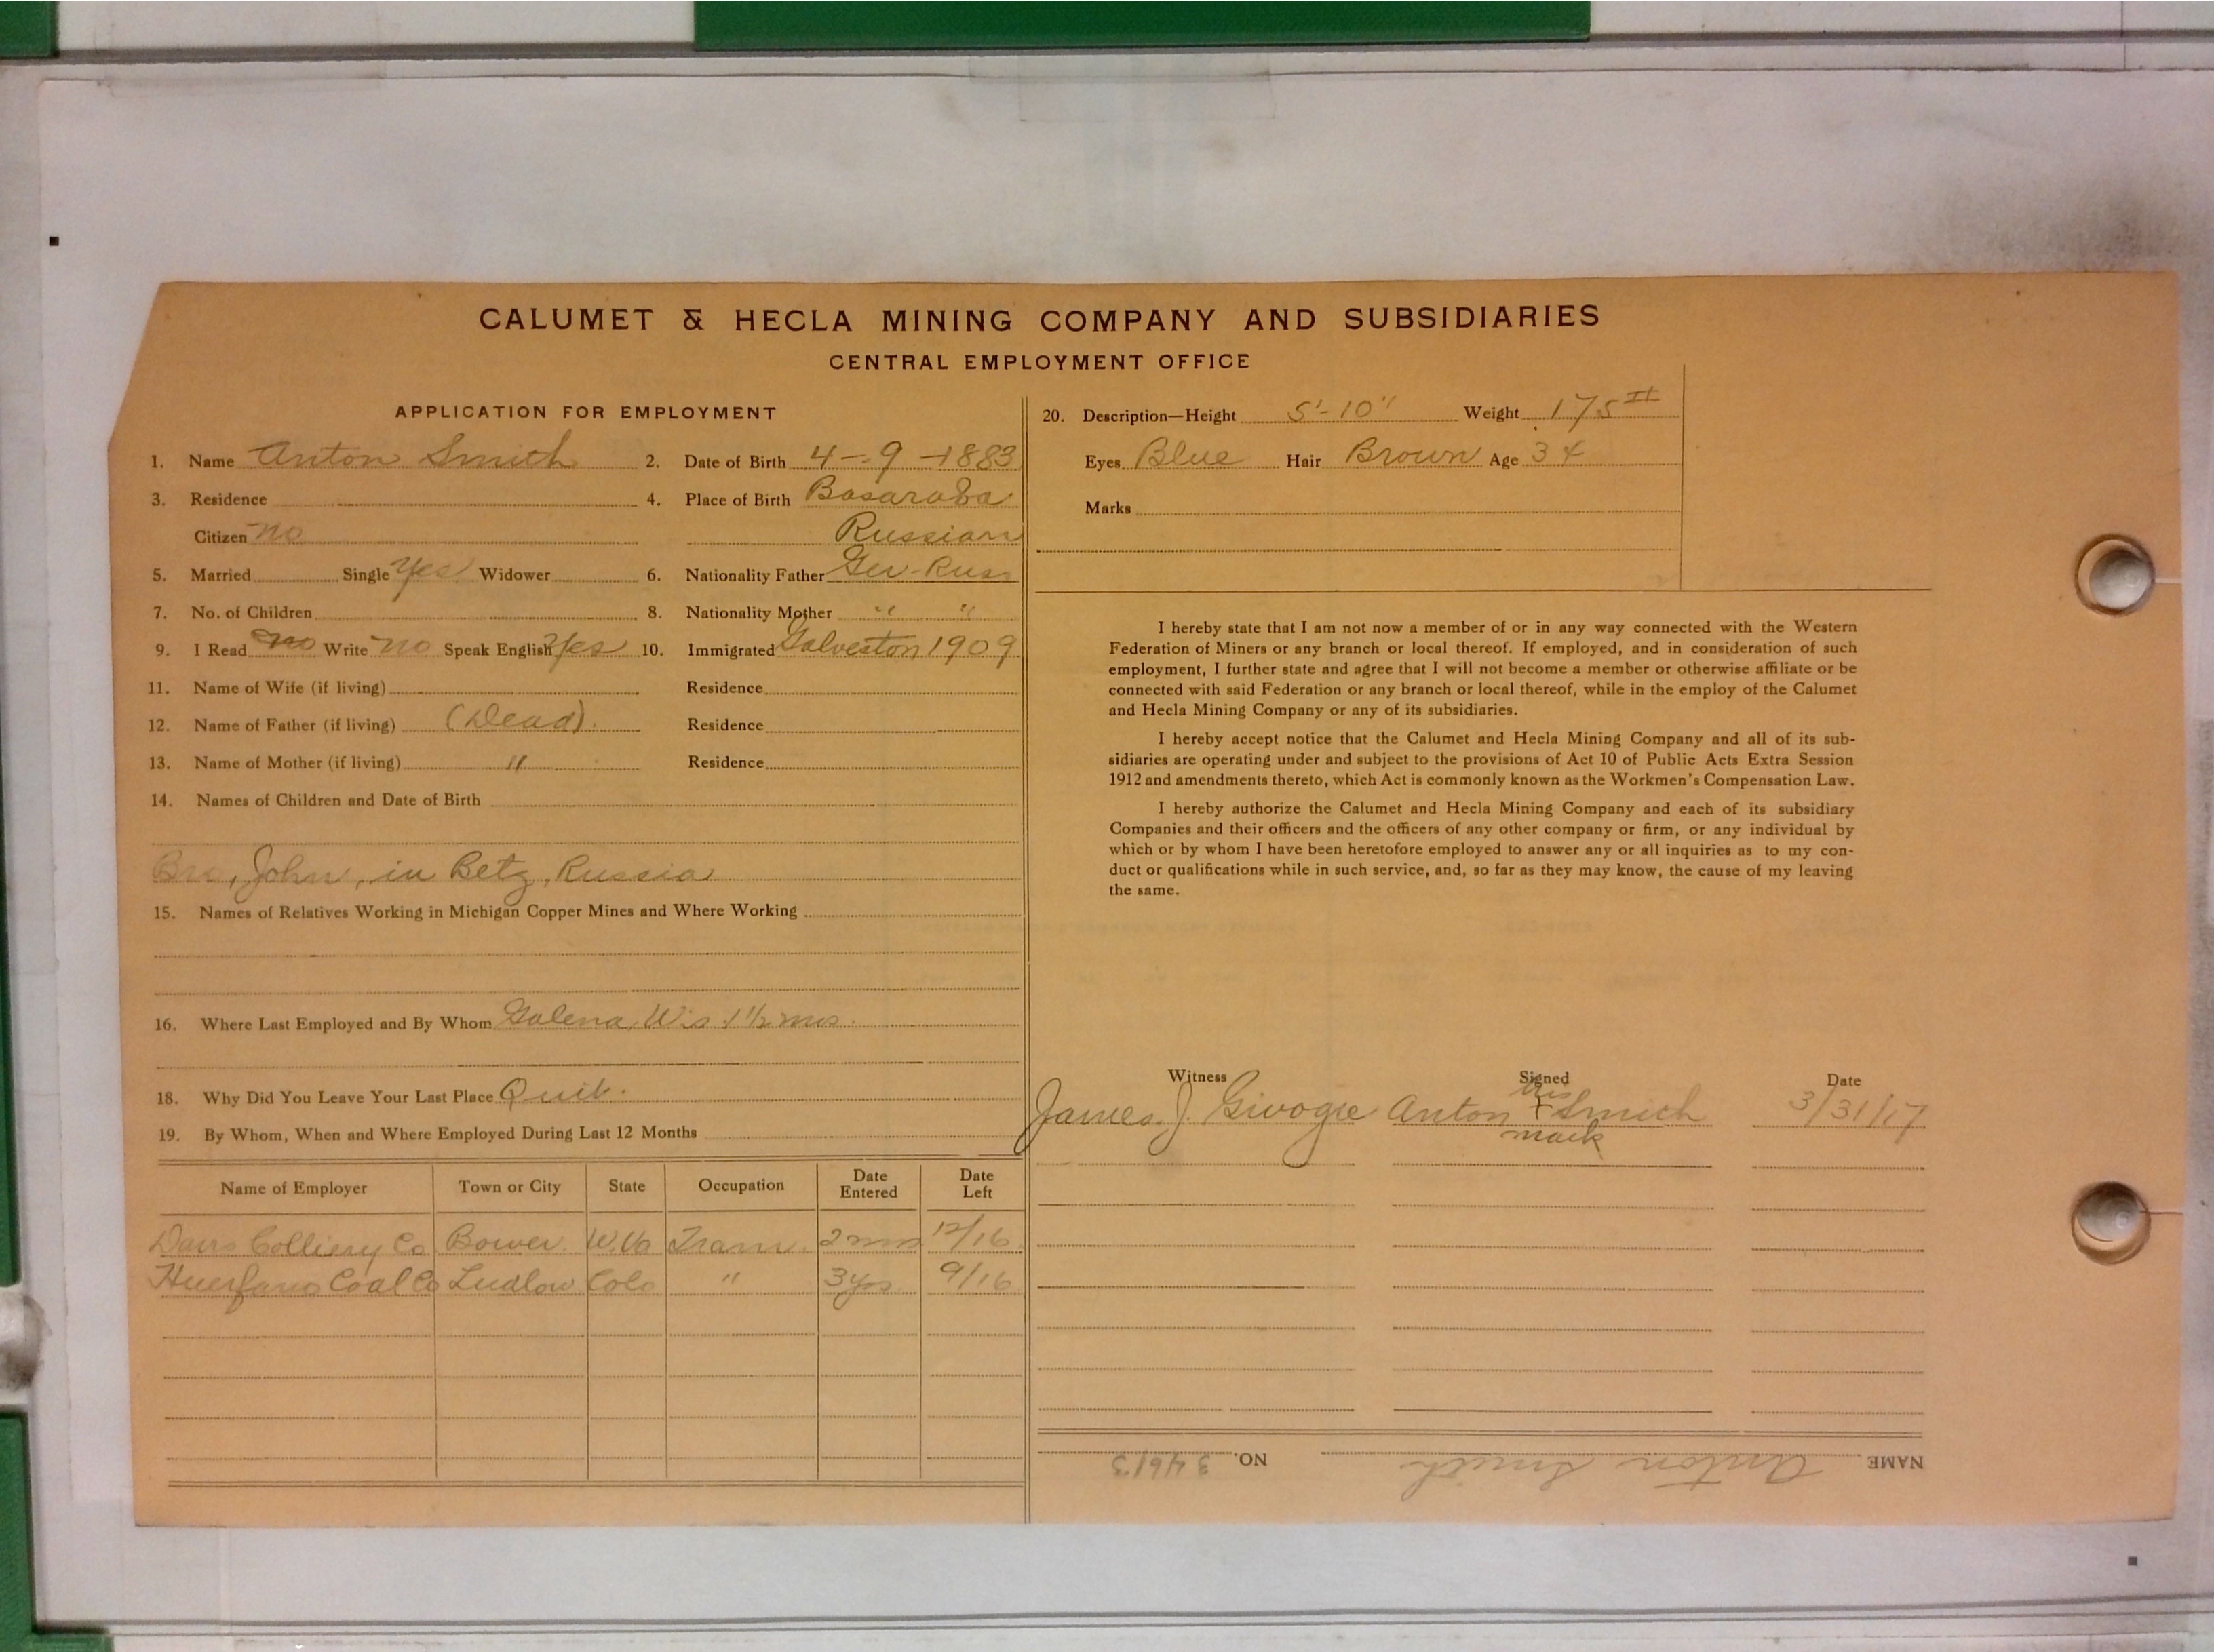 CALUMET & HECLA MINING COMPANY AND SUBSIDIARIES
CENTRAL EMPLOYMENT OFFICE
APPLICATION FOR EMPLOYMENT
1. Name Anton Smith 2. Date of Birth 4-9-1883
3. Residence 4. Place of Birth Basaraba
Citizen no Russian
5. Married Single Yes Widower 6. Nationality Father Ger-Russ
7. No. of Children 8. Nationality Mother " "
9. I Read no Write no Speak English? Yes 10. Immigrated Galveston 1909
11. Name of Wife (if living) Residence
12. Name of Father (if living) (Dead). Residence
13. Name of Mother (if living) " Residence
14. Names of Children and Date of Birth
Bro, John, in Betz, Russia
15. Names of Relatives Working in Michigan Copper Mines and Where Working
16. Where Last Employed and By Whom Galena, Wis. 1 1/2 mos.
18. Why Did You Leave Your Last Place Quit.
19. By Whom, When and Where Employed During Last 12 Months
Name of Employer Town or City State Occupation Date Entered Date Left
Davis Colliery Co Bower W.Va Tram. 2 mos 12/16
Huerfano Coal Co Ludlow Colo " 3 yrs. 9/16
20. Description—Height 5'-10" Weight 175#
Eyes Blue Hair Brown Age 34
Marks
I hereby state that I am not now a member of or in any way connected with the Western
Federation of Miners or any branch or local thereof. If employed, and in consideration of such
employment, I further state and agree that I will not become a member or otherwise affiliate or be
connected with said Federation or any branch or local thereof, while in the employ of the Calumet
and Hecla Mining Company or any of its subsidiaries.
I hereby accept notice that the Calumet and Hecla Mining Company and all of its sub-
sidiaries are operating under and subject to the provisions of Act 10 of Public Acts Extra Session
1912 and amendments thereto, which Act is commonly known as the Workmen's Compensation Law.
I hereby authorize the Calumet and Hecla Mining Company and each of its subsidiary
Companies and their officers and the officers of any other company or firm, or any individual by
which or by whom I have been heretofore employed to answer any or all inquiries as to my con-
duct or qualifications while in such service, and, so far as they may know, the cause of my leaving
the same.
Witness Signed Date
his
James. J. Anton X Smith 3/31/17
mark
NAME Anton Smith NO. 34613